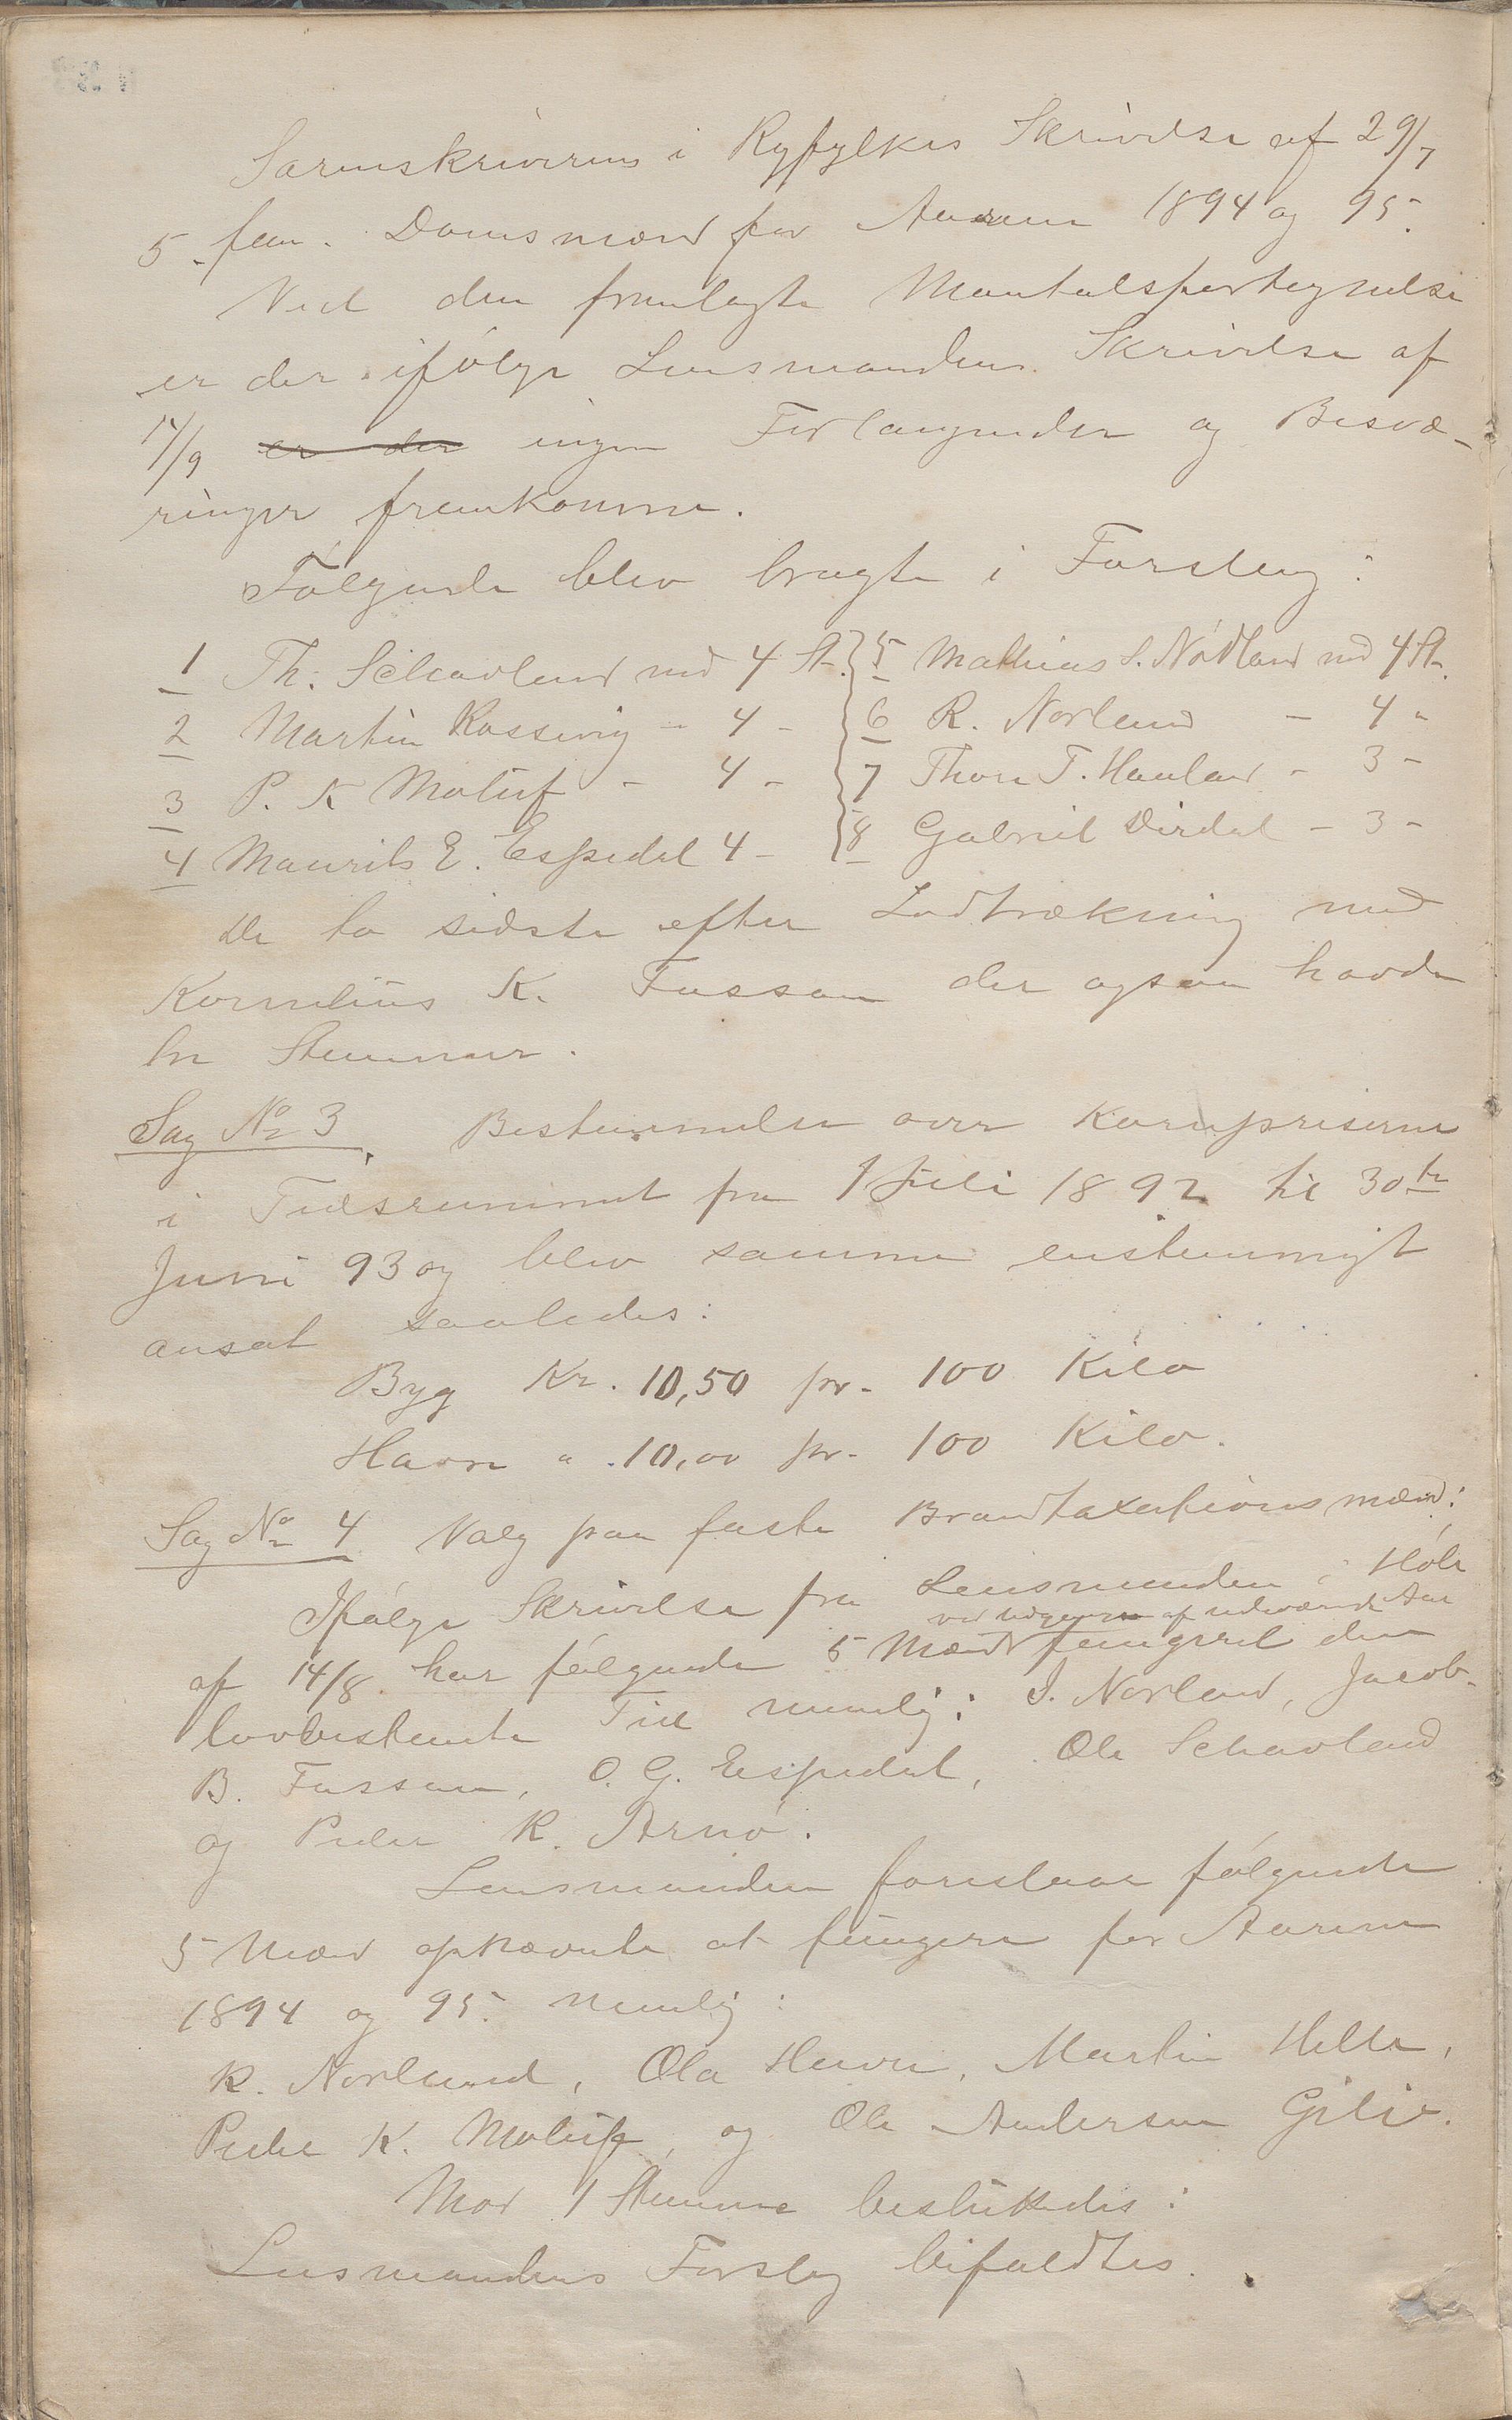 Sorenskriverens i Ryfylkes Skrivelse af 29/7
5 fem. Domsmænd for Aarene 1894 og 95.
Ved den fremlagte Mantalsfortegnelse
er der ifølge Lensmandens Skrivelse af
14/9 er der ingen Forlangender og Besvæ-
ringer fremkomne.
Følgende blev bragte i Forslag:
1 Th. Schavland med 4 St.
2 Martin Rossevig - 4 -
3 P. K Moluf - 4 -
4 Maurits E. Espedal 4 -
5 Mathias S. Nødland med 4 St.
6 R. Norland - 4 "
7 Thore T. Haaland - 3 -
8 Gabriel Dirdal - 3 -
De to sidste efter Lodtrækning med
Kornelius K. Fossan der ogsaa havde
tre Stemmer.
Sag No 3. Bestemmelse over Kornpriserne
i Tidsrummet fra 1 Juli 1892 til 30te
Juni 93 og blev samme enstemmigt
ansat saaledes:
Byg Kr. 10,50 pr. 100 Kilo
Havre " 10,00 pr. 100 Kilo.
Sag No 4 Valg paa faste Brandtaxationsmænd:
Ifølge Skrivelse fra Lensmanden i Høle
ved Udgangen af indeværende Aar
af 14/8 har følgende 5 Mænd fungeret den
lovbestemte Tid nemlig: I. Norland, Jacob
B. Fossan, O. G. Espedal, Ole Schavland
og Peder R. Arnø.
Lensmanden foreslaar følgende
5 Mænd opnævnte at fungere for Aarene
1894 og 95. nemlig:
R. Norland, Ola Haure, Martin Helle,
Peder K. Moluf, og Ole Andersen Gilje.
Mod 1 Stemme besluttedes:
Lensmandens Forslag bifaldtes.